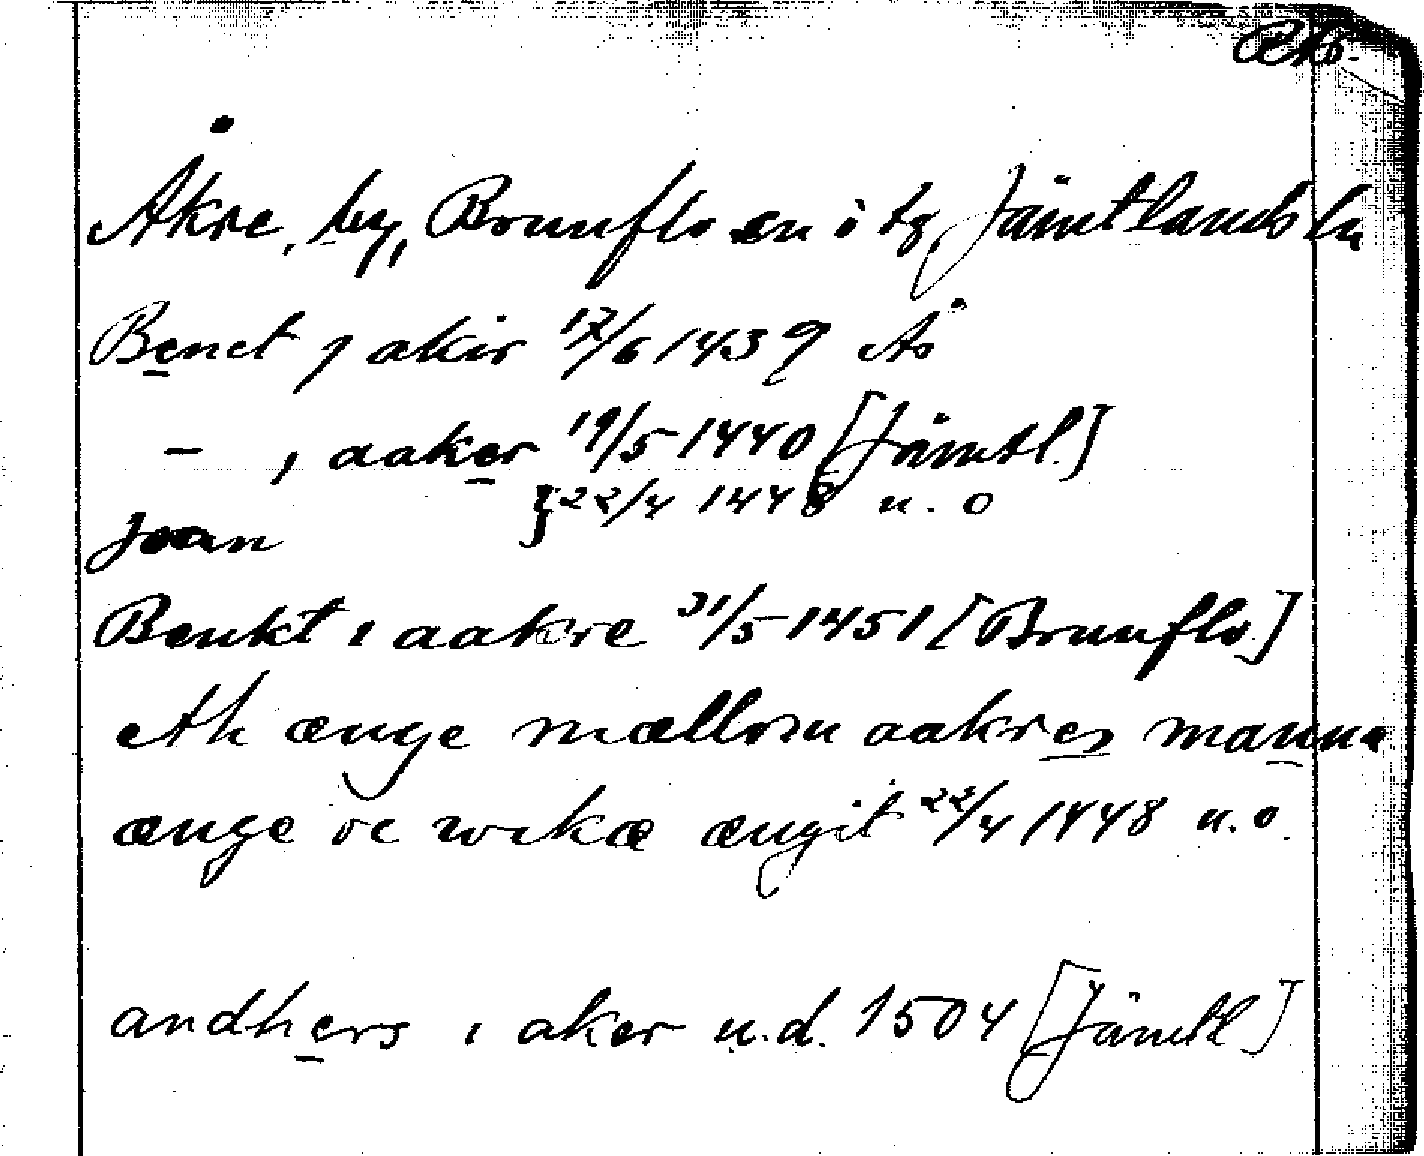 Åkre, by, Brunflo sn o tg, Jämtlands ln
Benct j akir 17/6 1439 Ås
– , aaker 19/5 1440 [Jämtl.]
} 22/4 1448 u. o
Joan
Benkt i aakre 31/5 1451 [Brunflo]
eth ænge mællom aakres manna
ænge oc wikæ ængit 22/4 1448 u. o.
andhers i aker u.d. 1504 [Jämtl]